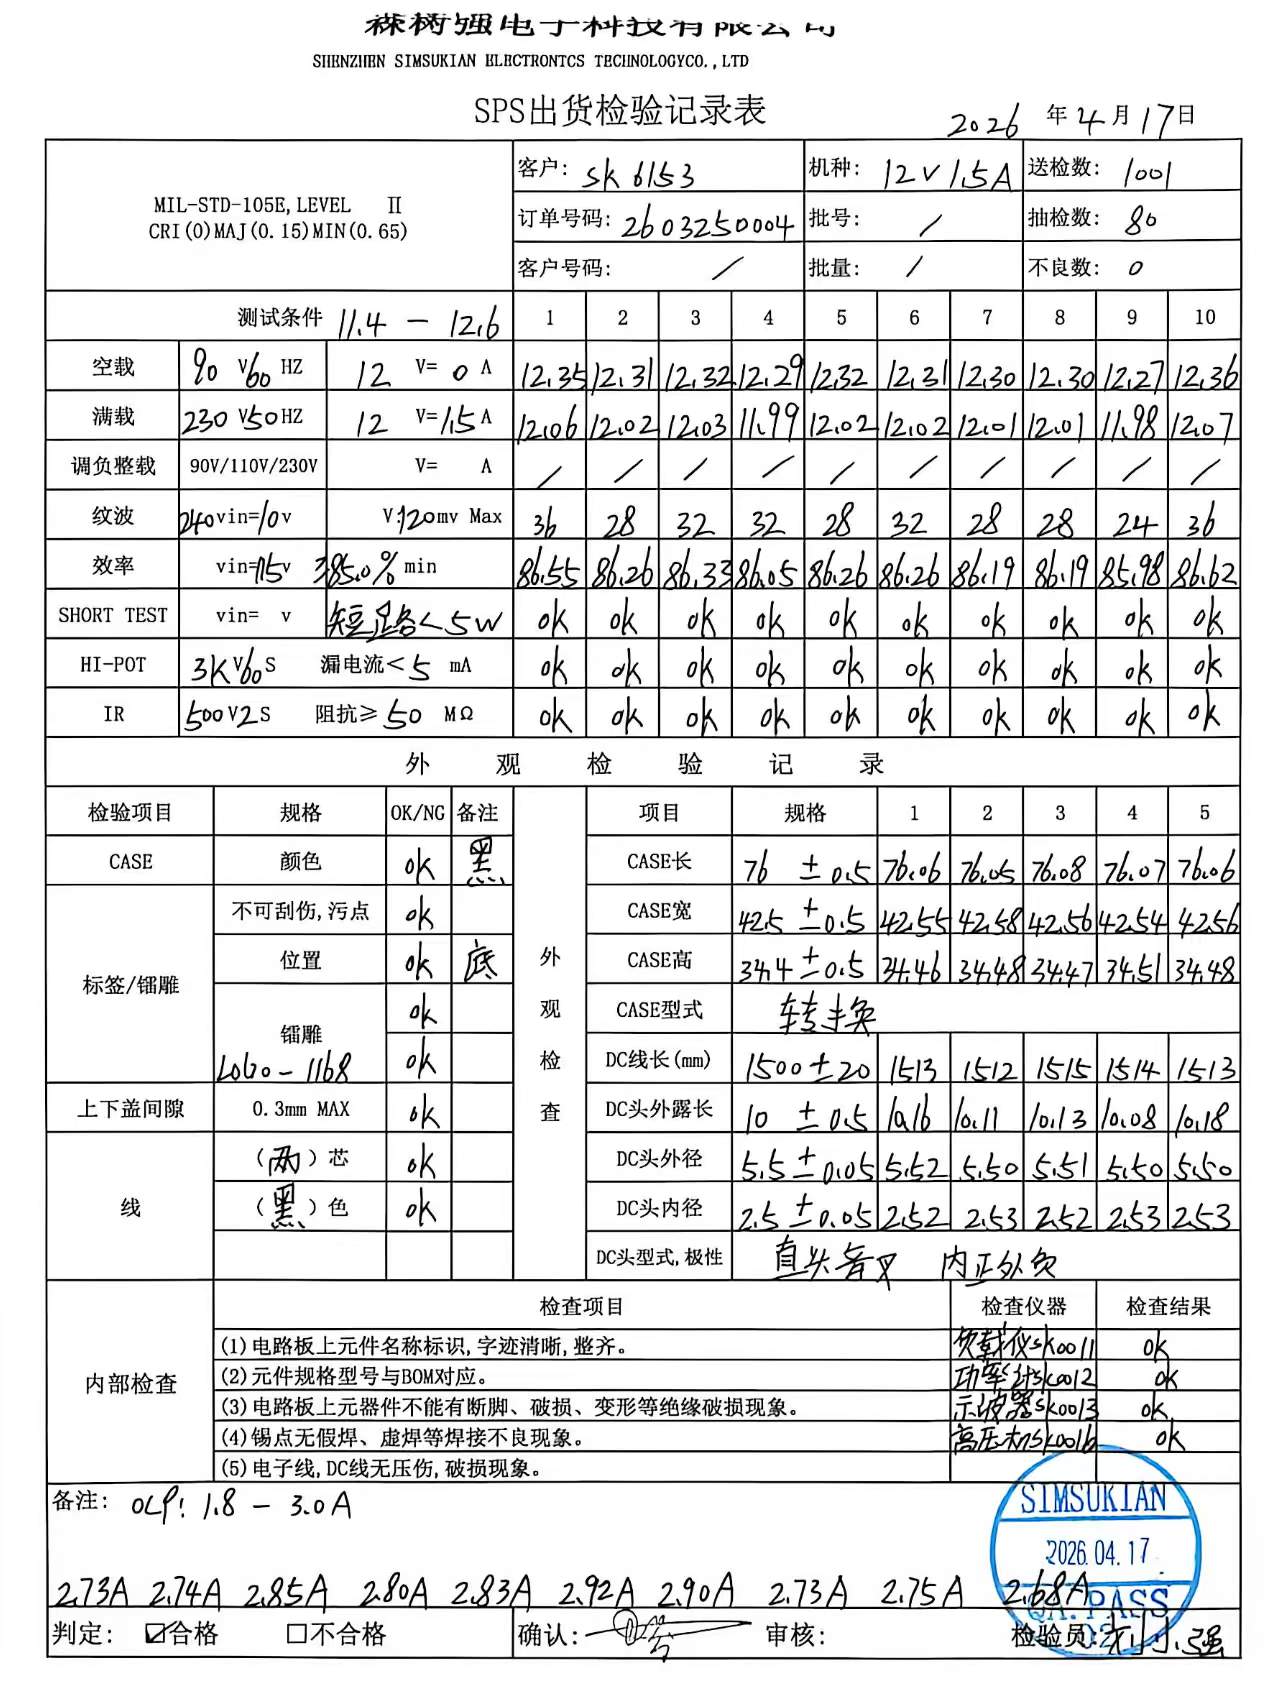 森树强电子科技有限公司
SHENZHEN SIMSUKIAN ELECTRONTCS TECHNOLOGYCO.,LTD
SPS出货检验记录表
2026 年 4 月 17 日
MIL-STD-105E,LEVEL Ⅱ
CRI(0)MAJ(0.15)MIN(0.65)
客户: SK6153 机种: 12V1.5A 送检数: 1001
订单号码: 2603250004 批号: / 抽检数: 80
客户号码: / 批量: / 不良数: 0
测试条件 11.4 - 12.6 1 2 3 4 5 6 7 8 9 10
空载 90 V60 HZ 12 V= 0 A 12.35 12.31 12.32 12.29 12.32 12.31 12.30 12.30 12.27 12.36
满载 230 V50HZ 12 V=1.5 A 12.06 12.02 12.03 11.99 12.02 12.02 12.01 12.01 11.98 12.07
调负整载 90V/110V/230V V= A / / / / / / / / / /
纹波 240vin=10v V:120mv Max 36 28 32 32 28 32 28 28 24 36
效率 vin=115v ≥85.0% min 86.55 86.26 86.33 86.05 86.26 86.26 86.19 86.19 85.98 86.62
SHORT TEST vin= v 短路<5W ok ok ok ok ok ok ok ok ok ok
HI-POT 3KV60S 漏电流<5 mA ok ok ok ok ok ok ok ok ok ok
IR 500V2S 阻抗≥50 MΩ ok ok ok ok ok ok ok ok ok ok
外观检验记录
检验项目 规格 OK/NG 备注 外观检查 项目 规格 1 2 3 4 5
CASE 颜色 ok 黑 CASE长 76 ±0.5 76.06 76.05 76.08 76.07 76.06
标签/镭雕 不可刮伤,污点 ok CASE宽 42.5 ±0.5 42.55 42.58 42.56 42.54 42.56
位置 ok 底 CASE高 34.4 ±0.5 34.46 34.48 34.47 34.51 34.48
镭雕 ok CASE型式 转换
LOGO-1168 ok DC线长(mm) 1500±20 1513 1512 1515 1514 1513
上下盖间隙 0.3mm MAX ok DC头外露长 10 ±0.5 10.16 10.11 10.13 10.08 10.18
线 (两)芯 ok DC头外径 5.5±0.05 5.52 5.50 5.51 5.50 5.50
(黑)色 ok DC头内径 2.5±0.05 2.52 2.53 2.52 2.53 2.53
DC头型式,极性 直头音叉 内正外负
内部检查 检查项目 检查仪器 检查结果
(1)电路板上元件名称标识,字迹清晰,整齐。 负载仪SK0011 ok
(2)元件规格型号与BOM对应。 功率计SK0012 ok
(3)电路板上元器件不能有断脚、破损、变形等绝缘破损现象。 示波器SK0013 ok
(4)锡点无假焊、虚焊等焊接不良现象。 高压机SK0016 ok
(5)电子线,DC线无压伤,破损现象。
备注: OCP: 1.8 - 3.0A
SIMSUKIAN
2026.04.17
QA.PASS
02
2.73A 2.74A 2.85A 2.80A 2.83A 2.92A 2.90A 2.73A 2.75A 2.68A
判定: ☑合格 □不合格 确认: 审核: 检验员: 小强